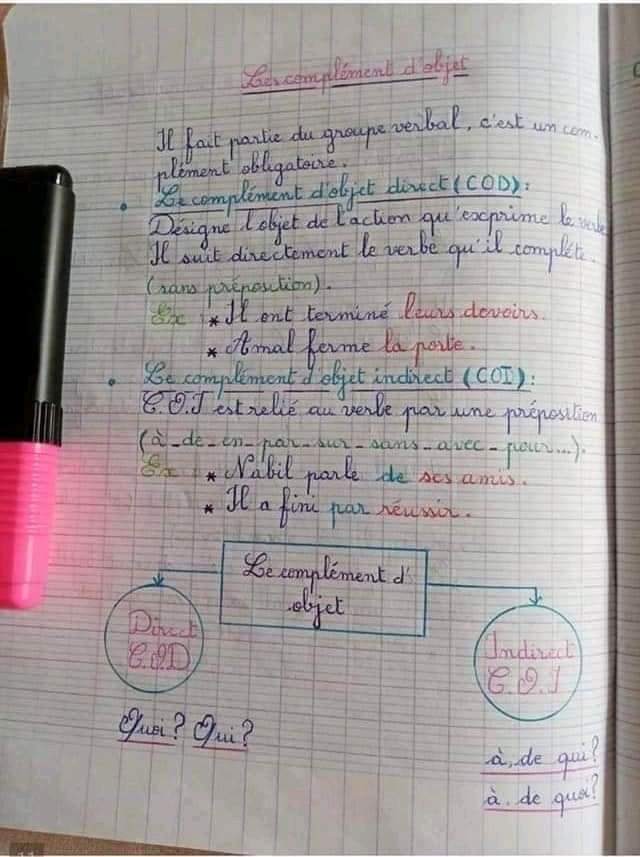 Les complément d'objet
Il fait partie du groupe verbal, c'est un com-
plément obligatoire.
• Le complément d'objet direct (COD) :
Désigne l'objet de l'action qu'exprime le verbe
Il suit directement le verbe qu'il complète.
(sans préposition).
Ex : * Il ont terminé leurs devoirs.
* Amal ferme la porte.
• Le complément d'objet indirect (COI) :
C.O.I est relié au verbe par une préposition
(à - de - en - par - sur - sans - avec - pour...).
Ex * Nabil parle de ses amis.
* Il a fini par réussir.
Le complément d'
objet
Direct
C.O.D
Indirect
C.O.I
Quoi? Qui?
à, de qui?
à, de quoi?